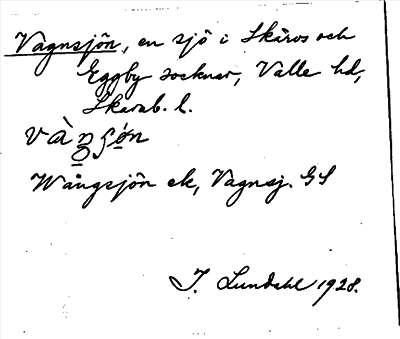 Vagnsjön, en sjö i Skärvs och
Eggby socknar, Valle hd,
Skarab. l.
Wångsjön ek, Vagnsj. GS
I. Lundahl 1928.